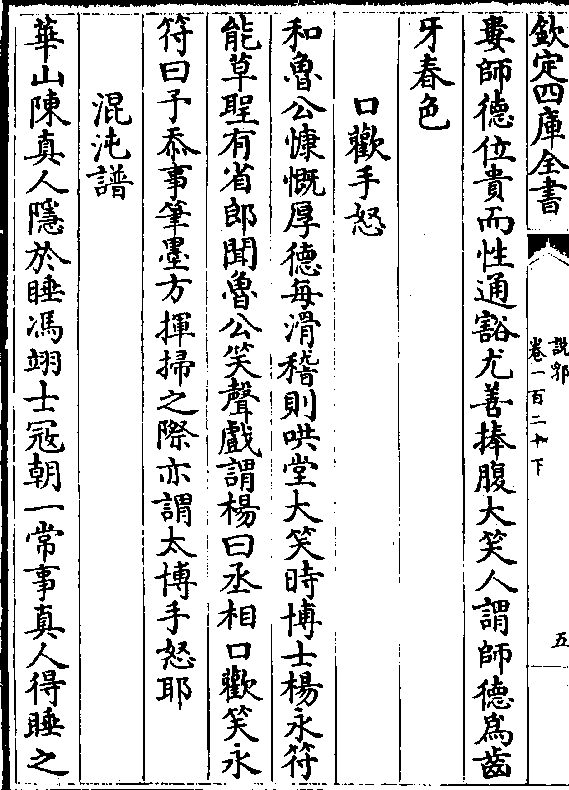 欽定四庫全書
說郛
卷一百二十下
五
婁師德位貴而性通豁尤善捧腹大笑人謂師德為齒
牙春色
口歡手怒
和魯公慷慨厚德每滑稽則哄堂大笑時博士楊永符
能草聖有省郎聞魯公笑聲戲謂楊曰丞相口歡笑永
符曰予忝事筆墨方揮掃之際亦謂太博手怒耶
混沌譜
華山陳真人隱於睡馮翊士冦朝一常事真人得睡之